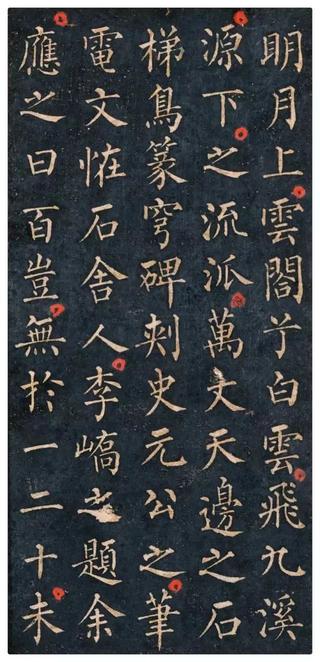 眀月上雲閣兮白雲飛九溪
源下之流派萬丈天邊之石
梯鳥篆穹碑刾史元公之筆
電文恠石舍人李嶠之題余
應之曰百豈無於一二十未